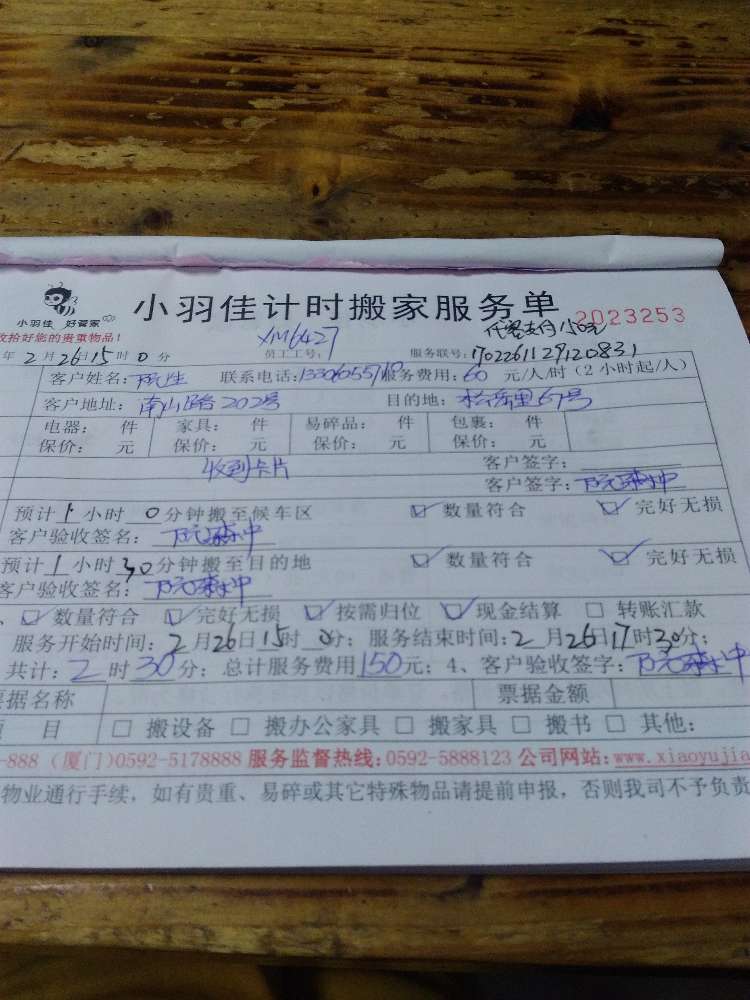 小羽佳 好管家
小羽佳计时搬家服务单
2023253
收拾好您的贵重物品!
XM6427
代客支付150元
年2月26日15时0分 员工工号: 服务联号:1702261129120831
客户姓名:阮生 联系电话: 服务费用:60元/人/时(2小时起/人)
客户地址:南山路202号 目的地:松岳里67号
电器: 件 家具: 件 易碎品: 件 包裹: 件
保价: 元 保价: 元 保价: 元 保价: 元
收到卡片 客户签字:
客户签字:
预计1小时0分钟搬至候车区 ☑数量符合 ☑完好无损
客户验收签名:
预计1小时30分钟搬至目的地 ☑数量符合 ☑完好无损
客户验收签名:
、☑数量符合 ☑完好无损 ☑按需归位 ☑现金结算 □转账汇款
服务开始时间:2月26日15时0分;服务结束时间:2月26日17时30分;
共计:2时30分;总计服务费用150元;4、客户验收签字:
票据名称 票据金额
项 目 □搬设备 □搬办公家具 □搬家具 □搬书 □其他:
-888 (厦门)0592-5178888 服务监督热线:0592-5888123 公司网站:www.xiaoyujia
物业通行手续,如有贵重、易碎或其它特殊物品请提前申报,否则我司不予负责